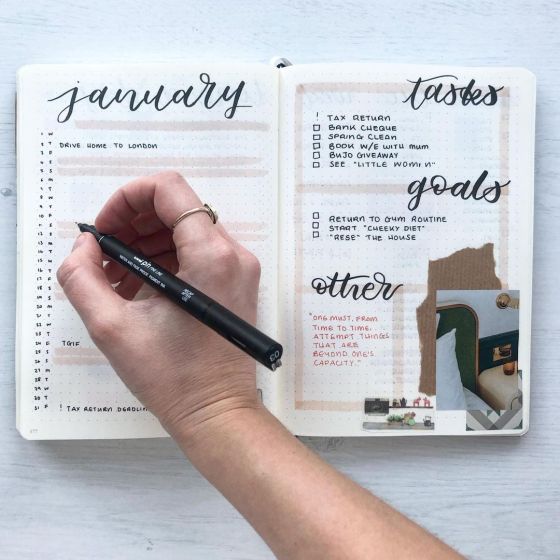 january
1 W
2 T DRIVE HOME TO LONDON
3 F
4 S
5 S
6 M
7 T
8 W
9 T
10 F
11 S
12 S
13 M
14 T
15 W
16 T
17 F
18 S
19 S
20 M
21 T
22 W
23 T
24 F TGIF
25 S
26 S
27 M
28 T
29 W
30 T
31 F ! TAX RETURN DEADLIN
tasks
! TAX RETURN
☐ BANK CHEQUE
☐ SPRING CLEAN
☐ BOOK W/E WITH MUM
☐ BUJO GIVEAWAY
☐ SEE "LITTLE WOMEN"
goals
☐ RETURN TO GYM ROUTINE
☐ START "CHEEKY DIET"
☐ "RESE" THE HOUSE
other
"ONE MUST, FROM
TIME TO TIME,
ATTEMPT THINGS
THAT ARE
BEYOND ONE'S
CAPACITY."
uni PIN FINE LINE
WATER AND FADE PROOF, PIGMENT INK